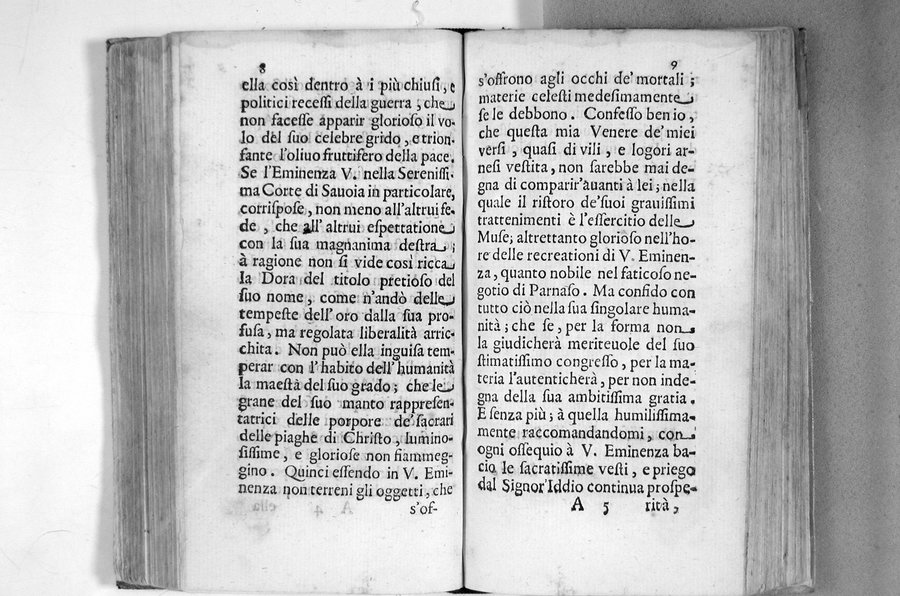 8
ella così dentro à i più chiusi, e
politici recessi della guerra, che
non facesse apparir glorioso il vo-
lo del suo celebre grido, e trion-
fante l'oliuo fruttifero della pace.
Se l'Eminenza V. nella Serenissi-
ma Corte di Sauoia in particolare,
corrispose, non meno all'altrui fe-
de, che all'altrui espettatione
con la sua magnanima destra;
à ragione non si vide così ricca
la Dora del titolo pretioso del
suo nome, come n'andò delle
tempeste dell'oro dalla sua pro-
fusa, ma regolata liberalità arric-
chita. Non può ella inguisa tem-
perar con l'habito dell'humanità
la maestà del suo grado; che le
grane del suo manto rappresen-
tatrici delle porpore de'sacrari
delle piaghe di Christo, lumino-
sissime, e gloriose non fiammeg-
gino. Quinci essendo in V. Emi-
nenza non terreni gli oggetti, che
s'of-
9
s'offrono agli occhi de'mortali;
materie celesti medesimamente
se le debbono. Confesso ben io,
che questa mia Venere de'miei
versi, quasi di vili, e logori ar-
nesi vestita, non sarebbe mai de-
gna di comparir'auanti à lei; nella
quale il ristoro de'suoi grauissimi
trattenimenti è l'essercitio delle
Muse; altrettanto glorioso nell'ho-
re delle recreationi di V. Eminen-
za, quanto nobile nel faticoso ne-
gotio di Parnaso. Ma confido con
tutto ciò nella sua singolare huma-
nità; che se, per la forma non
la giudicherà meriteuole del suo
stimatissimo congresso, per la ma-
teria l'autenticherà, per non inde-
gna della sua ambitissima gratia.
E senza più; à quella humilissima-
mente raccomandandomi, con
ogni ossequio à V. Eminenza ba-
cio le sacratissime vesti, e priego
dal Signor'Iddio continua prospe-
A 5 rità,